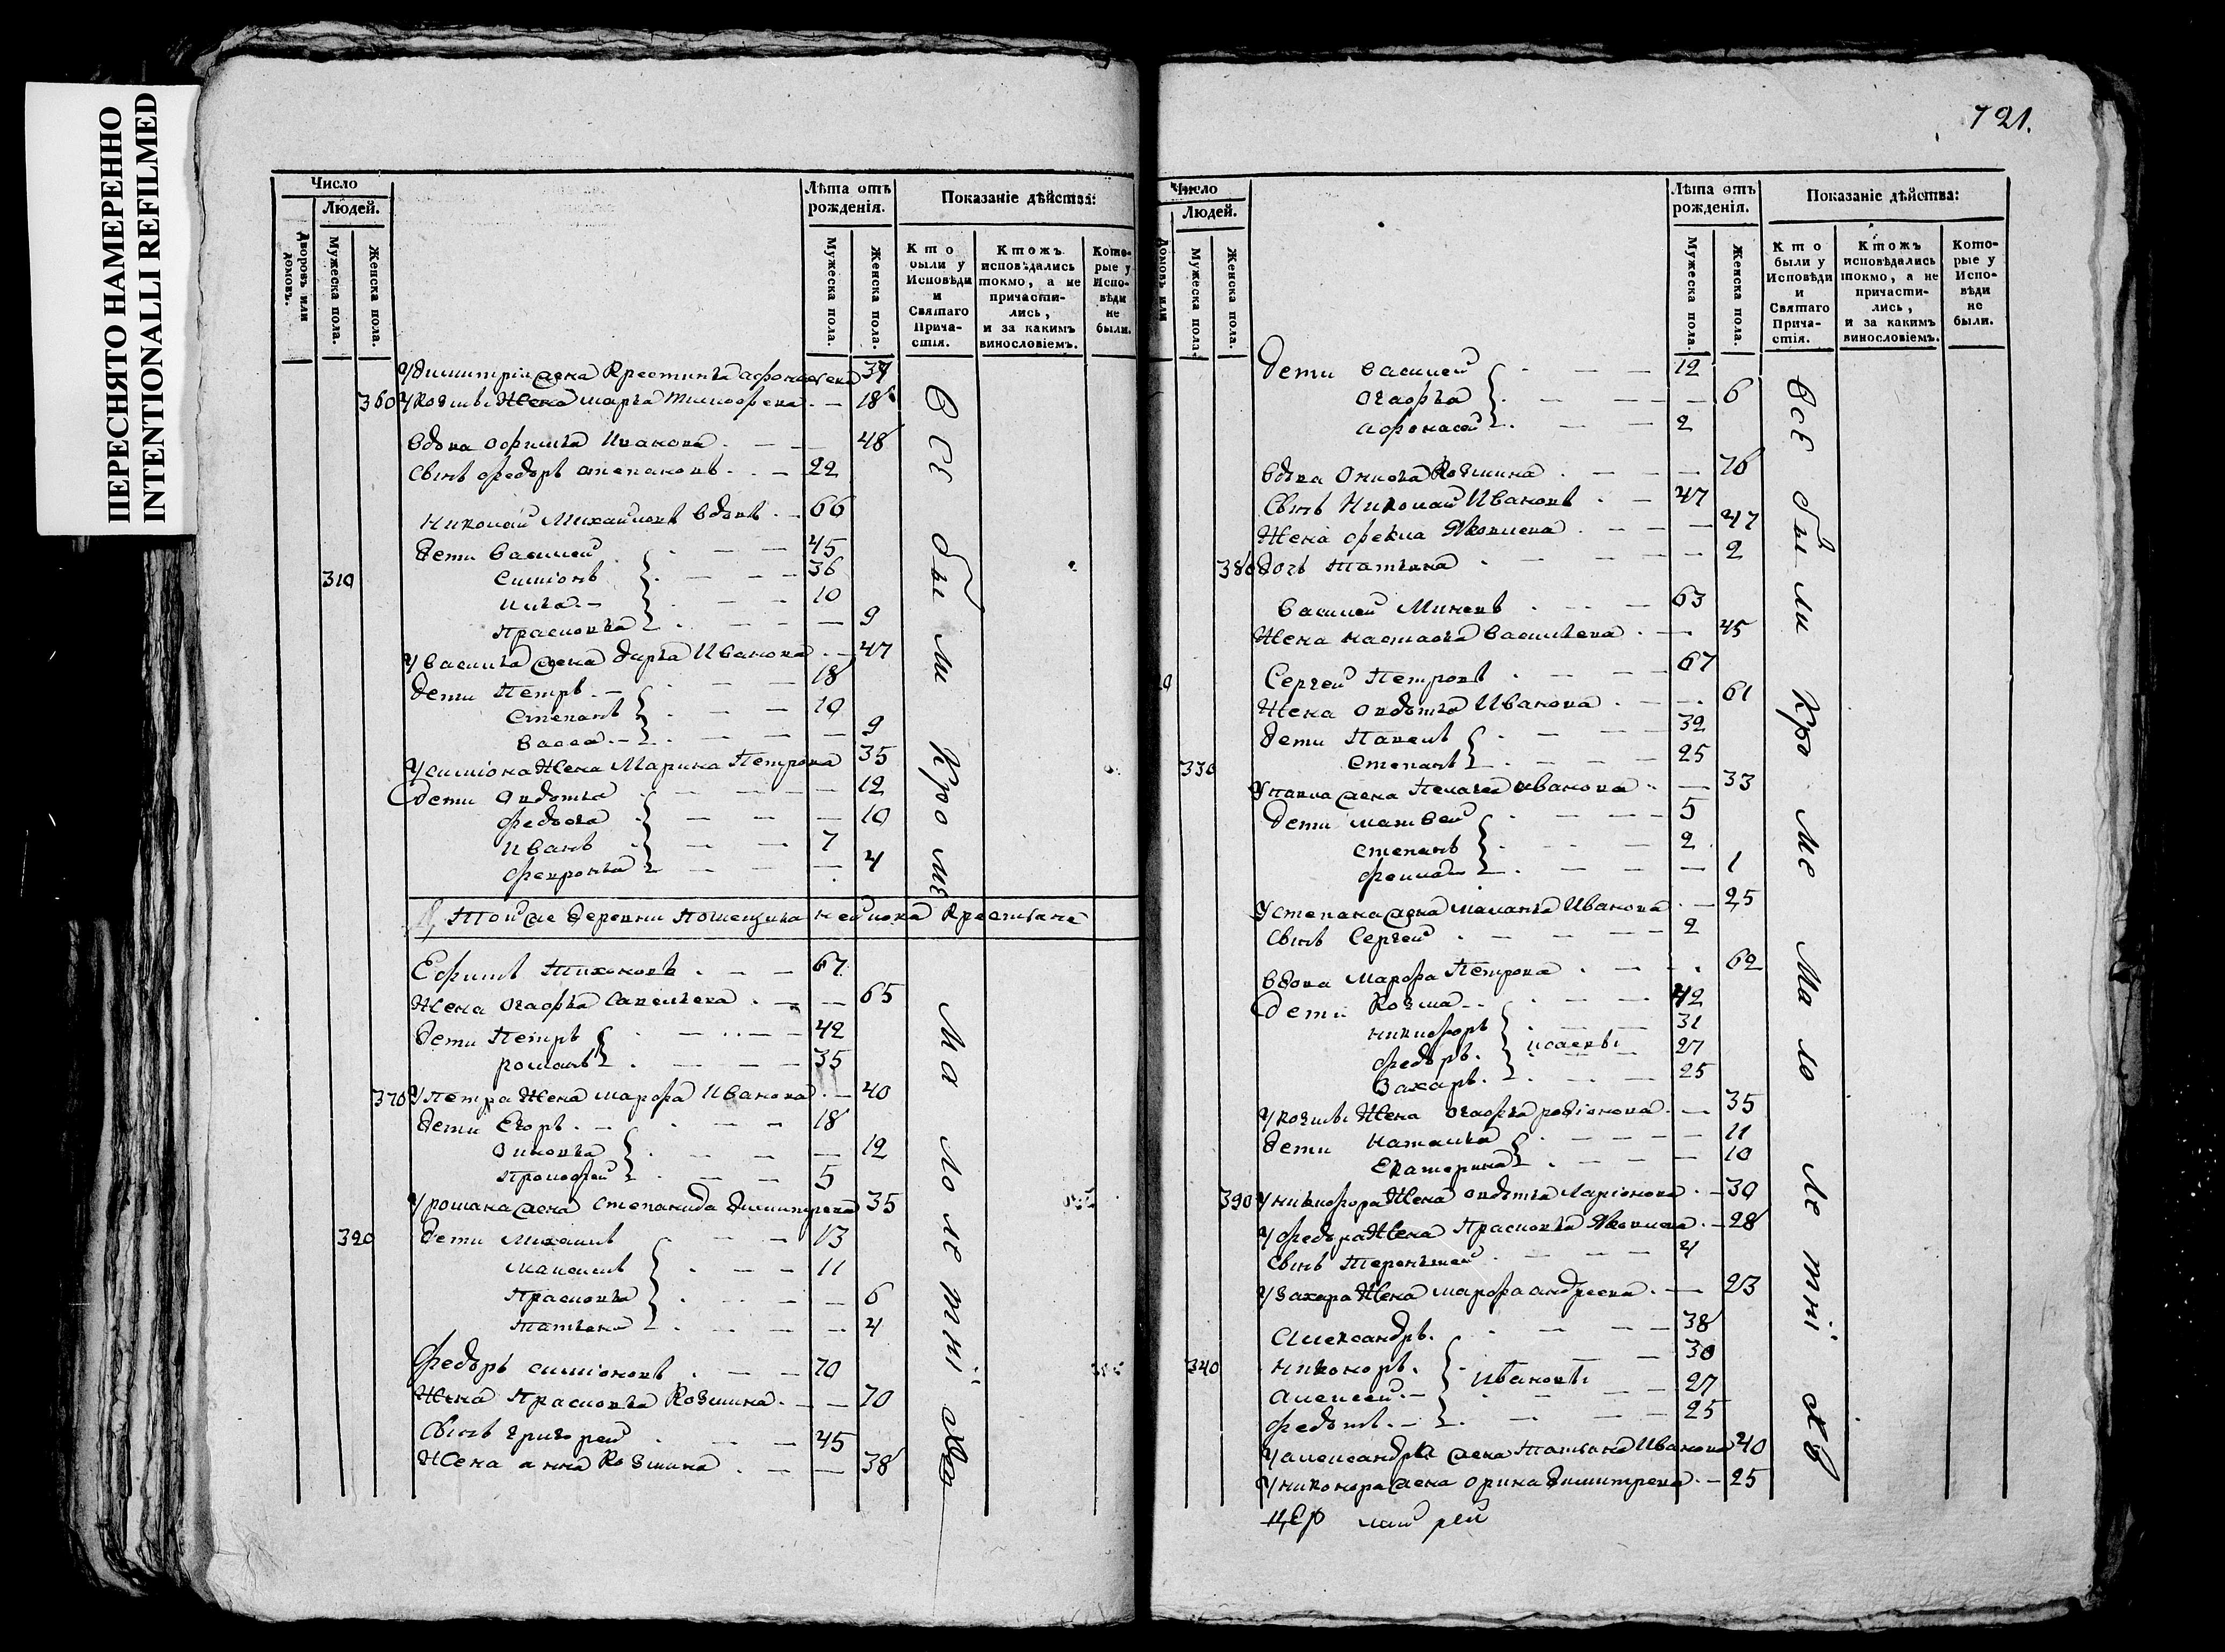 ПЕРЕСНЯТО НАМЕРЕННО
INTENTIONALLI REFILMED
Число
Людей.
Дворовъ или домовъ.
Мужеска пола.
Женска пола.
Лѣта отъ рожденія.
Мужеска пола.
Женска пола.
Показаніе дѣйства:
Кто были у Исповѣди и Святаго Прича-стія.
Ктожъ исповѣдались токмо, а не причасти-лись, и за какимъ винословіемъ.
Кото-рые у Испо-вѣди не были.
У димитрія жена Крестинья афонасева 34
360 У Козмы Жена марья Тимофева 18
вдова Софимья Иванова 48
Сынъ федоръ степановъ 22
Николай Михайловъ вдовъ 66
дети Василей 45
310 Симіонъ 36
Илья 10
Прасковья 9
У василья жена дарья Иванова 47
дети Петръ 18
Степанъ 10
васса 9
У симіона Жена Марина Петрова 35
дети овдотья 12
федосья 10
Иванъ 7
февронья 4
Той же деревни Помещика крестьяне
Ефимъ Тихоновъ 67
Жена огафья савельева 65
дети Петръ 42
романъ 35
370 У Петра Жена марфа Иванова 40
дети Егоръ 18
Зиновья 12
Прокофей 5
У романа жена степанида димитрева 35
320 дети Михаилъ 13
11
Прасковья 6
Татьяна 4
федоръ симіоновъ 70
Жена Прасковья Козмина 70
Сынъ григорей 45
Жена анна Козмина 38
Всѣ были Кроме
Малолетніхъ
721.
Число
Людей.
домовъ или
Мужеска пола.
Женска пола.
Лѣта отъ рожденія.
Мужеска пола.
Женска пола.
Показаніе дѣйства:
Кто были у Исповѣди и Святаго Прича-стія.
Ктожъ исповѣдались токмо, а не причасти-лись, и за какимъ винословіемъ.
Кото-рые у Испо-вѣди не были.
дети василей 12
огафья 6
афонасей 2
вдова Онисья Козмина 76
Сынъ Николай Ивановъ 47
Жена фекла Яковлева 47
380 дочь Татьяна 2
василей Минеевъ 63
Жена настасья васильева 45
Сергей Петровъ 67
Жена овдотья Иванова 61
дети Павелъ 32
330 Степанъ 25
У павла жена Пелагея иванова 33
дети матвей 5
степанъ 2
1
У степана жена маланья Иванова 25
Сынъ Сергей 2
вдова Марфа Петрова 62
дети Козма 42
никифоръ 31
исаевы
федоръ 27
Захаръ 25
У козмы Жена огафья родіонова 35
дети наталья 11
Екатерина 10
390 У никифора Жена овдотья Ларіонова 30
У федора Жена Прасковья Яковлева 28
Сынъ Терентей 4
У захара Жена марфа андреева 23
Александръ 38
340 никоноръ 30
Ивановы
алексей 27
федотъ 25
У александра жена Татьяна Иванова 40
У никонора жена орина димитрева 25
Всѣ были Кроме Малолетніхъ